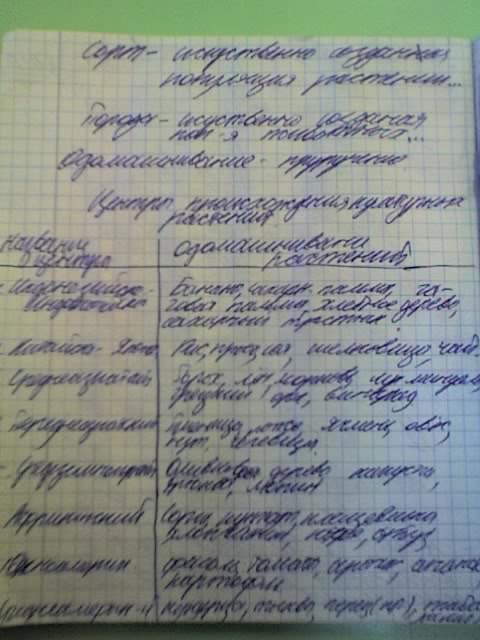 Сорт - искуственно созданная
популяция растений...
Порода - исуственно созданая
поп-я животных...
Одомашнивание - приручение
Центры происхождения культурных
растений.
Название
центра
Одомашнивание
растений
Банан, сахарн. пальма, са-
говая пальма, хлебное дерево,
сахарный тростник.
Китайско-Японс
Рис, просо, соя, шелковица, чай
Среднеазиатский
Горох, лён, морковь, лук, миндаль,
грецкий орех, виноград
Переднеазиатский
Пшеница, рожь, ячмень, овёс,
нут, чечевица.
Средиземноморский
Оливковое дерево, капуста,
люпин
Африканский
Сорго, кунжут, клещевина
хлопчатник, кофе, арбуз
Южноамерикан
фасоль, томаты, арахис, ананас
картофель
кукуруза, тыква, перец(кр), табак